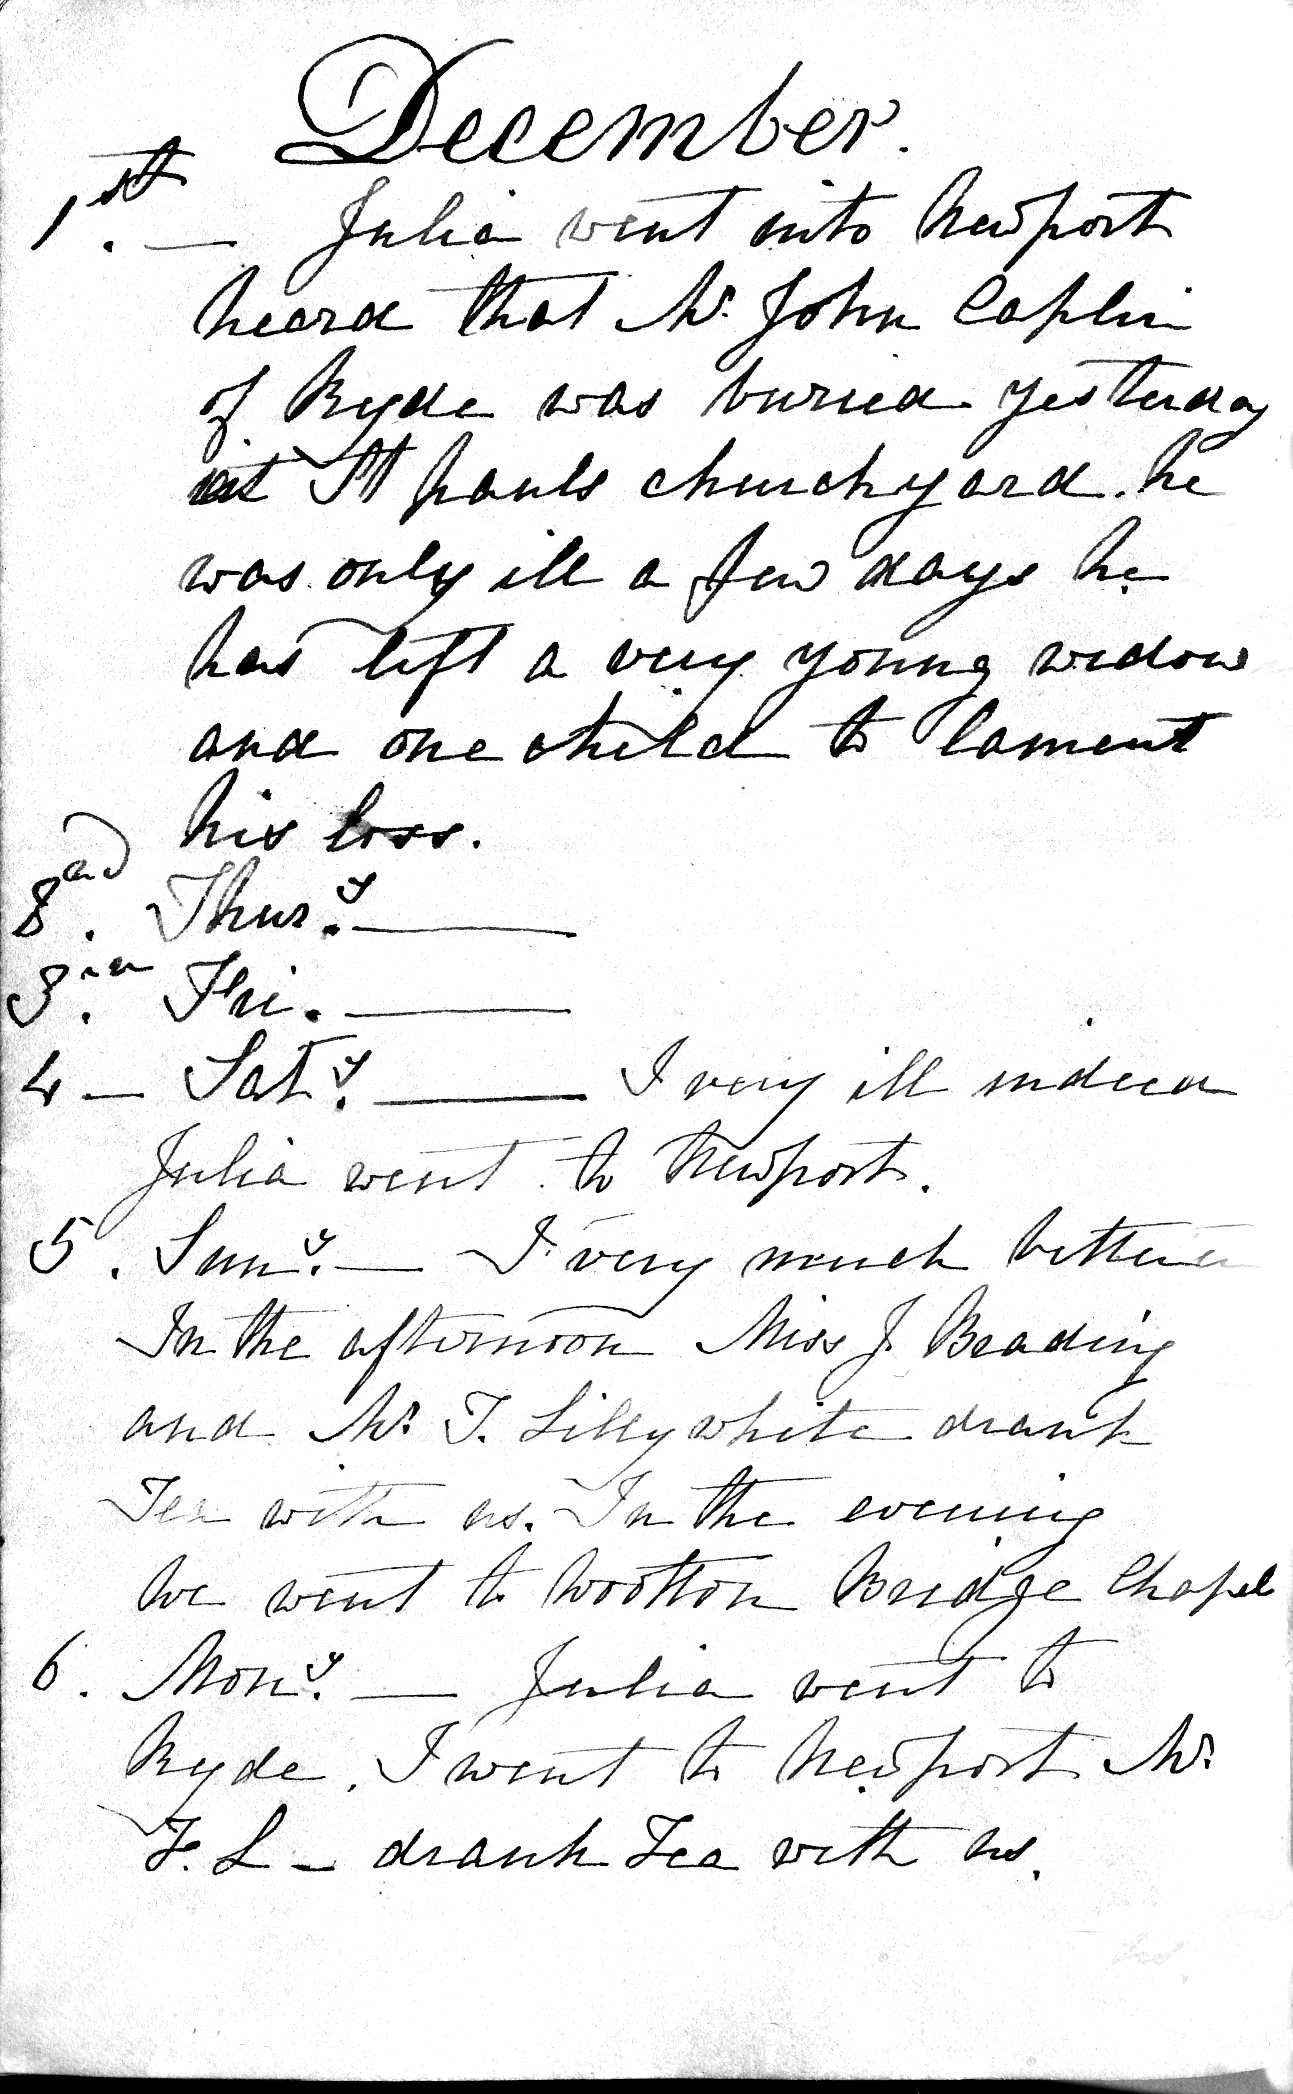 December.
1st. — Julia went into Newport
heard that Mr. John Caplin
of Ryde was buried yesterday
at St Pauls churchyard. he
was only ill a few days he
has left a very young widow
and one child to lament
his loss.
2nd. Thurs.y —
3rd. Fri. —
4 — Sat.y — I very ill indeed
Julia went to Newport.
5. Sun.y — I very much better
In the afternoon Miss J. Beading
and Mr. F. Lillywhite drank
Tea with us. In the evening
we went to Wootton Bridge Chapel
6. Mon.y — Julia went to
Ryde, I went to Newport Mr.
F. L — drank Tea with us.